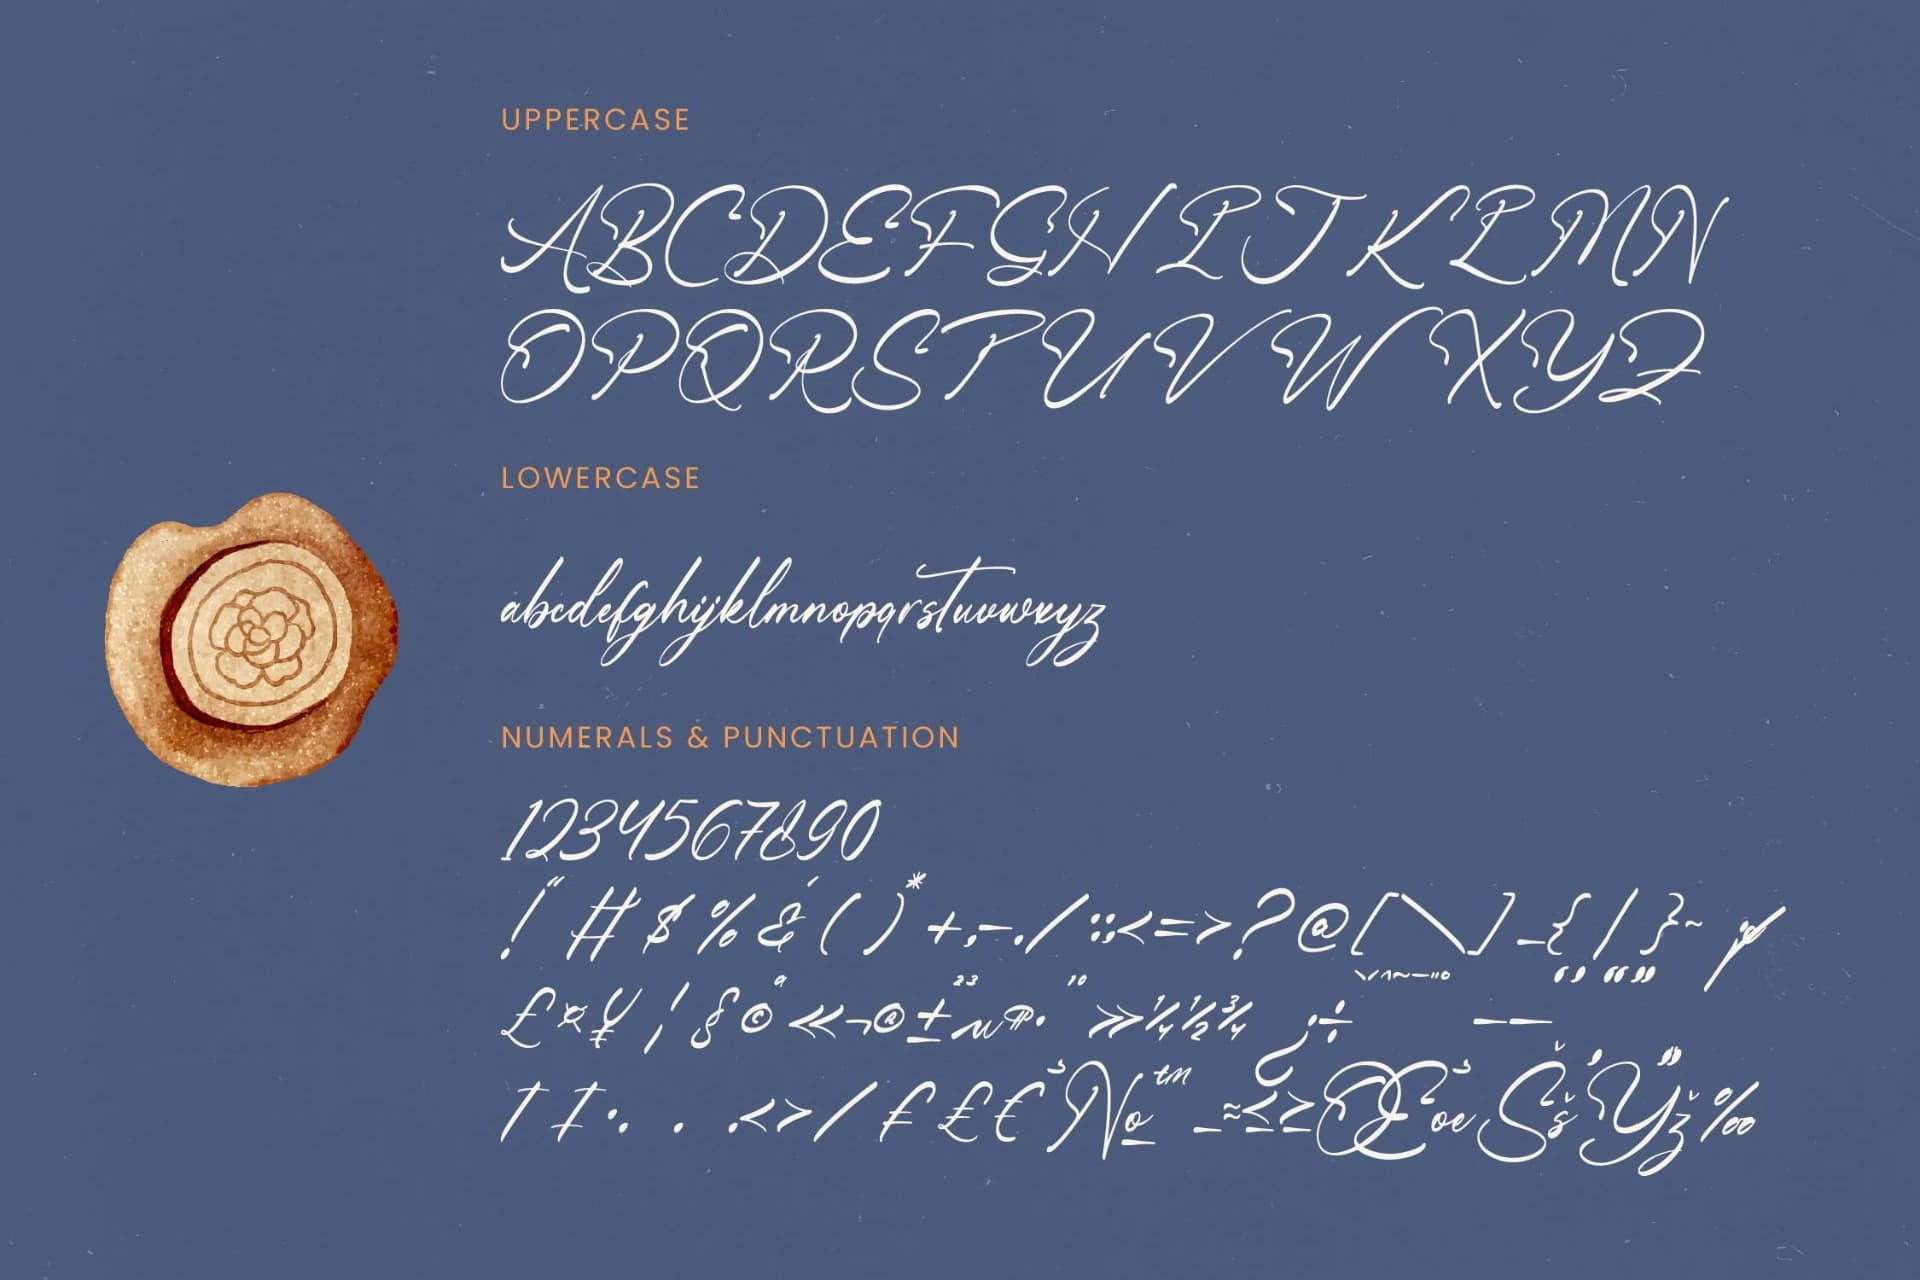 UPPERCASE
ABCDEFGHIJKLMN
OPQRSTUVWXYZ
LOWERCASE
abcdefghijklmnopqrstuvwxyz
NUMERALS & PUNCTUATION
1234567890
!"#$%&'()*+,-./:;<=>?@[\]_{|}~
£¤¥¦§©ª«¬®±²³µ¶·¹º»¼½¾¿÷–—
†‡•…‹›⁄₣₤€№™−≈≤≥ŒœŠšŸž‰